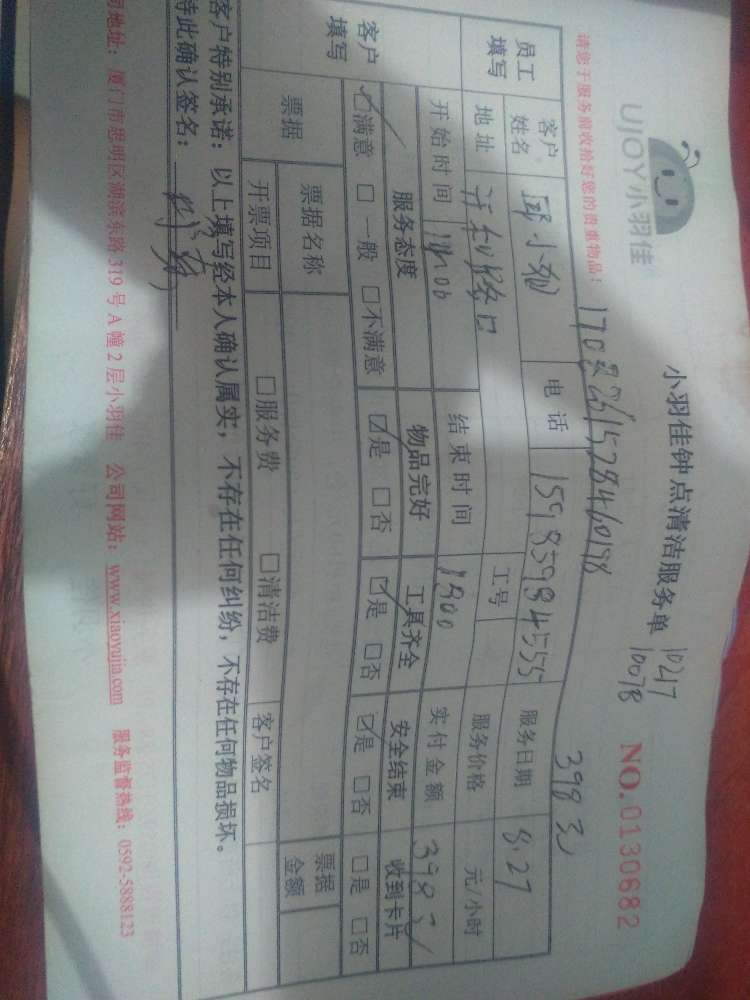 UJOY小羽佳
小羽佳钟点清洁服务单
10217
10078
NO.0130682
请您于服务前收拾好您的贵重物品!
398元
员工填写
客户姓名
邱小姐
电话
15985945555
服务日期
8.27
地址
工号
服务价格
元/小时
开始时间
结束时间
1900
实付金额
398元
客户填写
服务态度
物品完好
工具齐全
安全结束
收到卡片
☑满意 □一般 □不满意
☑是 □否
☑是 □否
☑是 □否
□是 □否
票据
票据名称
开票项目
□服务费
□清洁费
客户签名
票据金额
客户特别承诺:以上填写经本人确认属实,不存在任何纠纷,不存在任何物品损坏。
特此确认签名:
司地址:厦门市思明区湖滨东路319号A幢2层小羽佳 公司网站:www.xiaoyujia.com 服务监督热线:0592-5888123